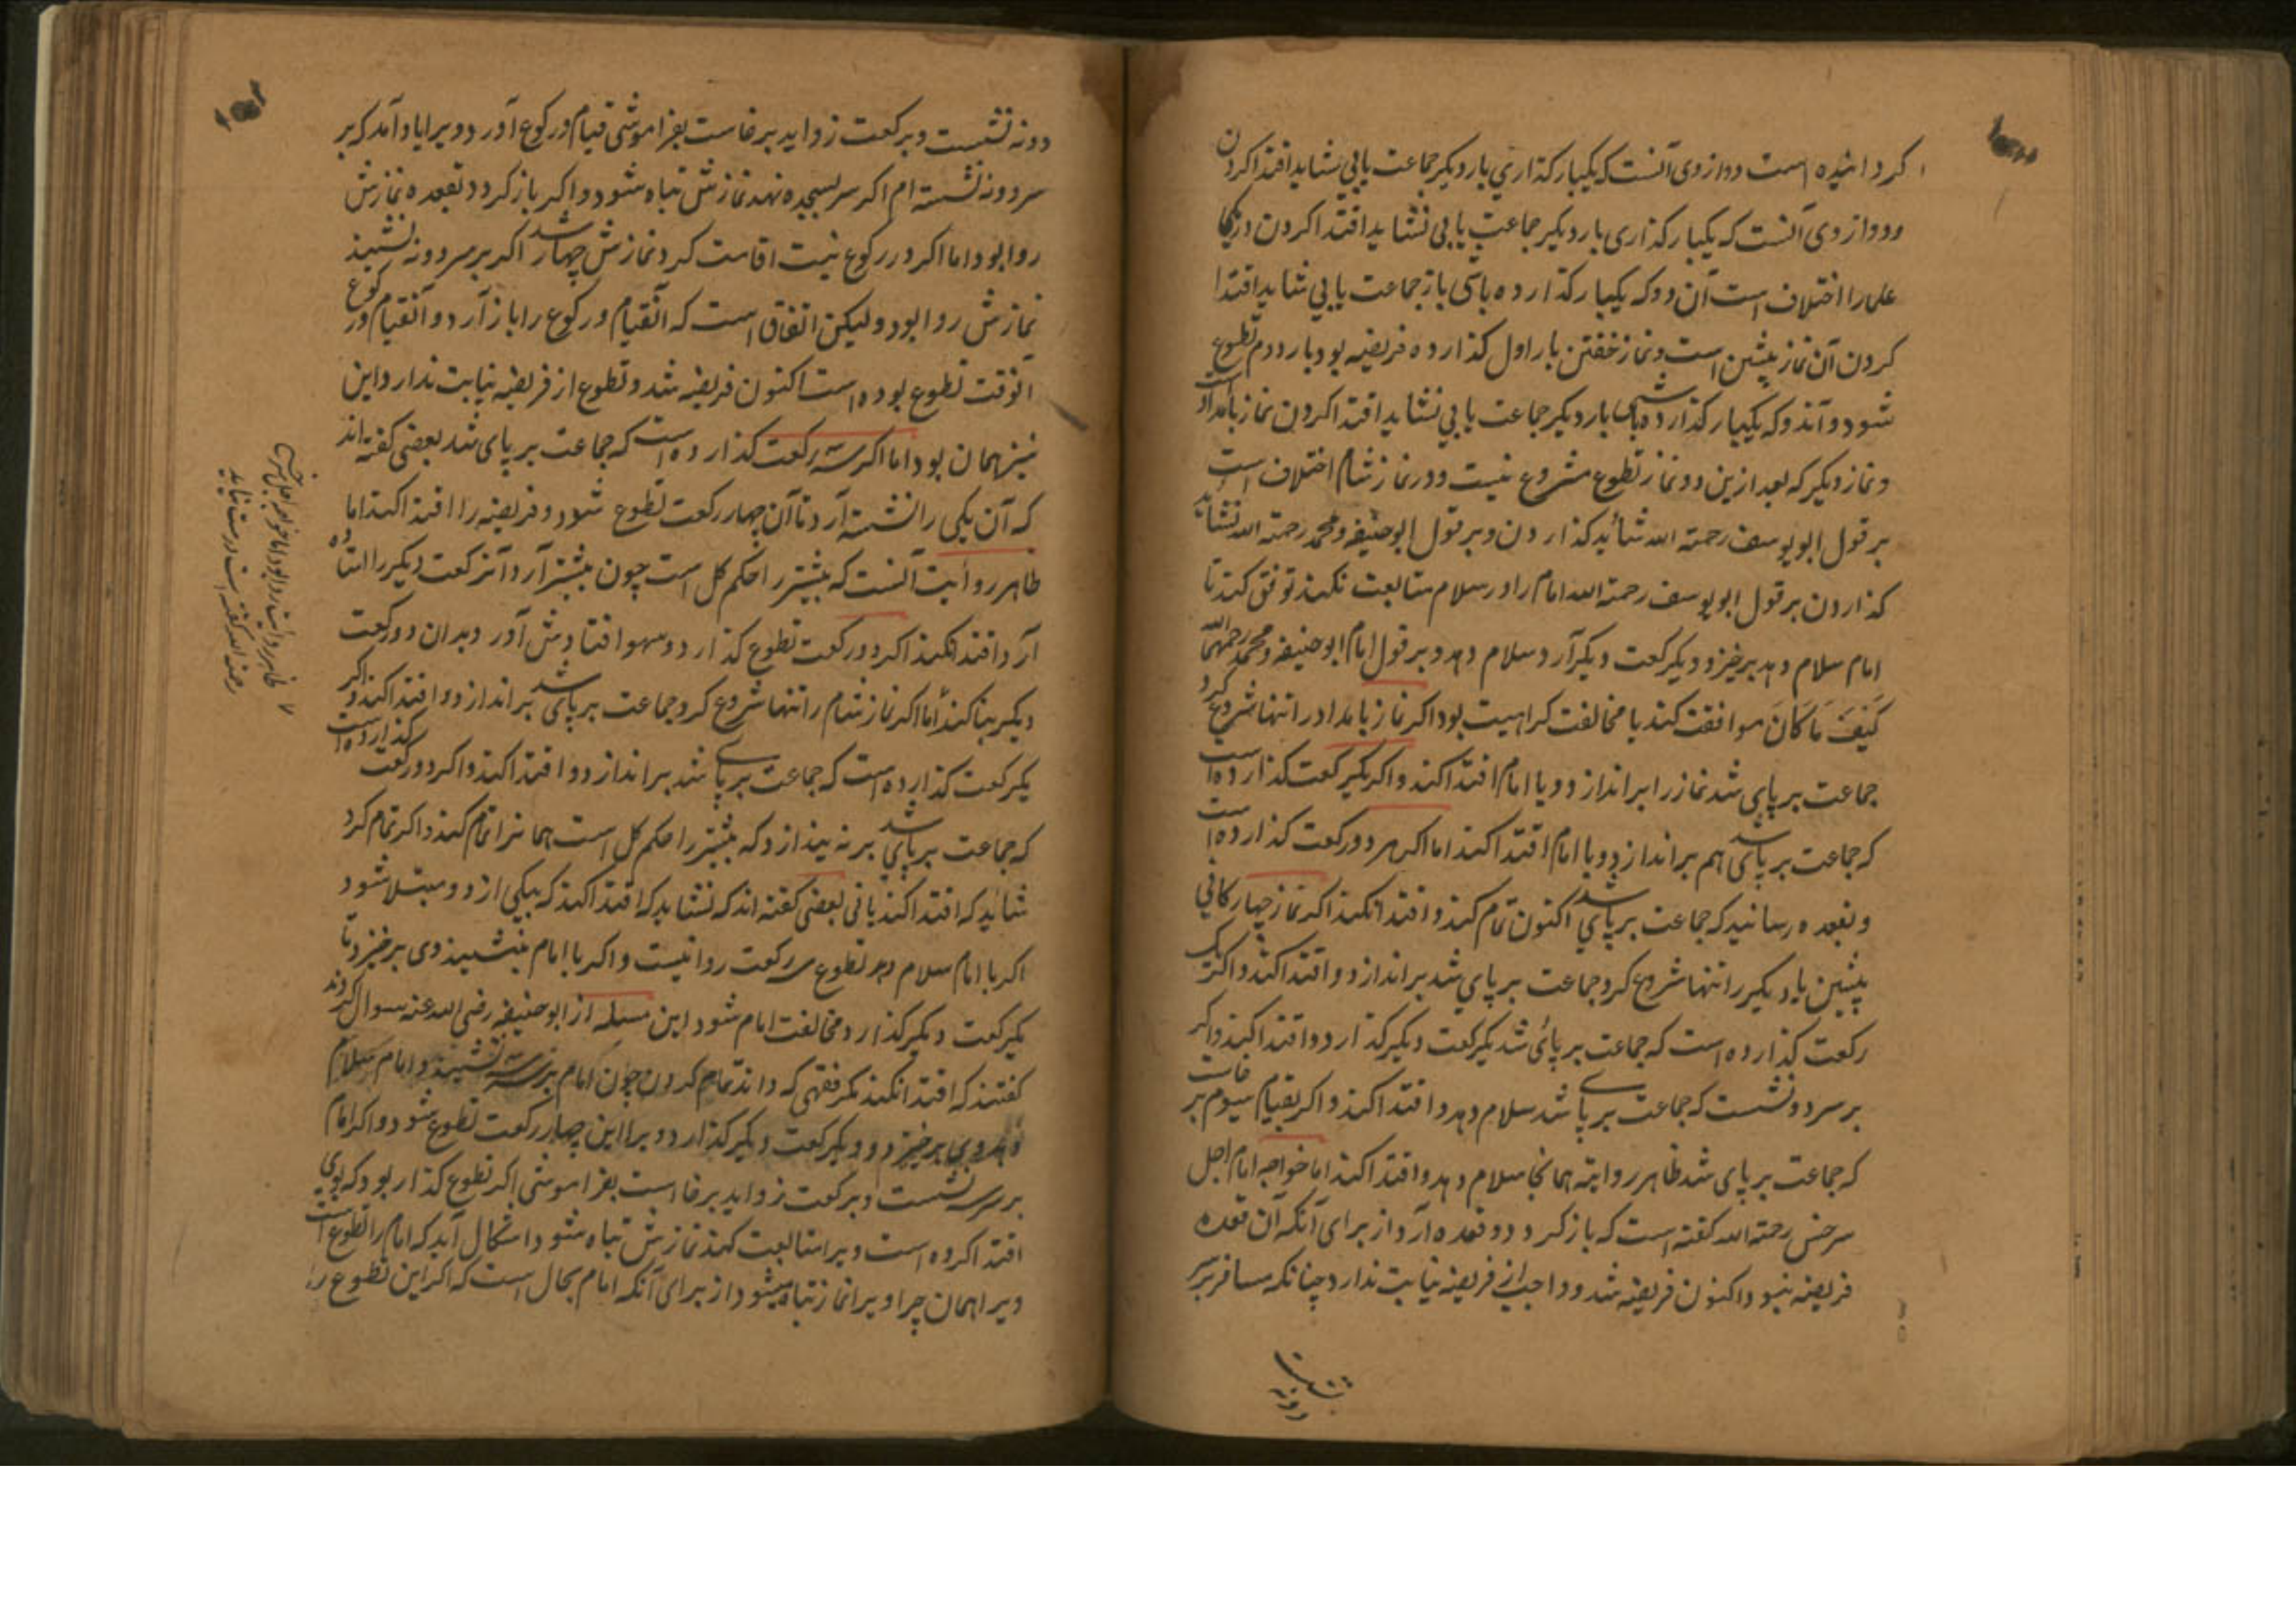 کردانیده است و دو از وی آنست که یکبار کذاری بار دیکر جماعت یابی شاید اقتدا کردن
و دو از وی آنست که یکبار کذاری بار دیکر جماعت یابی نشاید اقتدا کردن و در یکی
علما را اختلاف است آن دو که یکبار کذارده باشی باز جماعت یابی شاید اقتدا
کردن آن نماز پیشین است و نماز خفتن بار اول کذارده فریضه بود بار دوم تطوع
شود و آندو که یکبار کذارده باشی بار دیکر جماعت یابی نشاید اقتدا کردن نماز بامداد است
و نماز دیکر که بعد ازین دو نماز تطوع مشروع نیست و در نماز شام اختلاف است
بر قول ابو یوسف رحمته الله شاید کذاردن و بر قول ابوحنیفه و محمد رحمته الله نشاید
کذاردن بر قول ابو یوسف رحمته الله امام را در سلام متابعت نکند توقف کند تا
امام سلام دهد برخیزد و یکرکعت دیکر آرد و سلام دهد و بر قول امام ابوحنیفه و محمد رحمهما الله
کَیْفَ مَا کَانَ موافقت کند با مخالفت کراهیت بود اکر نماز بامداد را تنها شروع کرد
جماعت بر پای شد نماز را براندازد و با امام اقتدا کند و اکر یکرکعت کذارده است
که جماعت بر پای شد هم براندازد و با امام اقتدا کند اما اکر هر دو رکعت کذارده است
و بقعده رسانید که جماعت بر پای شد اکنون تمام کند و اقتدا نکند اکر نماز چهارکانی
پیشین یا دیکر را تنها شروع کرد جماعت بر پای شد براندازد و اقتدا کند و اکر یک
رکعت کذارده است که جماعت بر پای شد یکرکعت دیکر کذارد و اقتدا کند و اکر
بر سر دو نشست که جماعت بر پای شد سلام دهد و اقتدا کند و اکر بقیام سیوم بر خاست
که جماعت بر پای شد ظاهر روایته همانجا سلام دهد و اقتدا کند اما خواجه امام اجل
سرخسی رحمته الله کفته است که باز کردد و قعده آرد از برای آنکه آن قعده
فریضه نبود اکنون فریضه شد و واجب از فریضه نیابت ندارد چنانکه مسافر بر سر
دو نه نشست و برکعت زواید برخاست بفراموشی قیام و رکوع آورد و ویرا یاد آمد که بر
سر دو نه نشسته ام اکر سر بسجده نهد نمازش تباه شود و اکر باز کردد بقعده نمازش
روا بود اما اکر در رکوع نیت اقامت کرد نمازش چهار شد اکر بر سر دو نه نشیند
نمازش روا بود ولیکن اتفاق است که آنقیام و رکوع را باز آرد و آنقیام و رکوع
آنوقت تطوع بوده است اکنون فریضه شد و تطوع از فریضه نیابت ندارد این
نیز همان بود اما اکر سه رکعت کذارده است که جماعت بر پای شد بعضی کفته اند
که آن یکی را نشسته آرد تا آن چهار رکعت تطوع شود و فریضه را اقتدا کند اما
ظاهر روایت آنست که بیشتر را حکم کل است چون بیشتر آرد آنرکعت دیکر را استاده
آرد اقتدا نکند اکر دو رکعت تطوع کذارد و سهو افتادش آورد بدان دو رکعت
دیکر بنا کند اما اکر نماز شام را تنها شروع کرد جماعت بر پای شد براندازد و اقتدا کند و اکر
یکرکعت کذارده است که جماعت بر پای شد براندازد و اقتدا کند و اکر دو رکعت کذارده است
که جماعت بر پای شد برنه یندازد که بیشتر را حکم کل است همانرا تمام کند و اکر تمام کرد
شاید که اقتدا کند یا نی بعضی کفته اند که نشاید که اقتدا کند که بیکی از دو مبتلا شود
اکر با امام سلام دهد تطوع سه رکعت روا نیست و اکر با امام بنشیند وی برخیزد تا
یکرکعت دیکر کذارد مخالفت امام شود این مسله از ابوحنیفه رضی الله عنه سوال کردند
کفتند که اقتدا نکند مکر فقهی که داند تمام کردن چون امام بر سه نشیند و امام سلام
دهد وی برخیزد و یکرکعت دیکر کذارد ویرا این چهار رکعت تطوع شود و اکر امام
بر سر سه نشست و برکعت زواید برخاست بفراموشی اکر تطوع کذار بود که بوی
اقتدا کرده است ویرا متابعت کند نمازش تباه شود و اشکال آید که امام را تطوع است
ویرا همان چرا ویرا نماز تباه میشود از برای آنکه امام بحال است که اکر این تطوع را
ظاهر روایت روا بود اما خواجه امام اجل سرخسی
رحمته الله کفته است درست نیاید